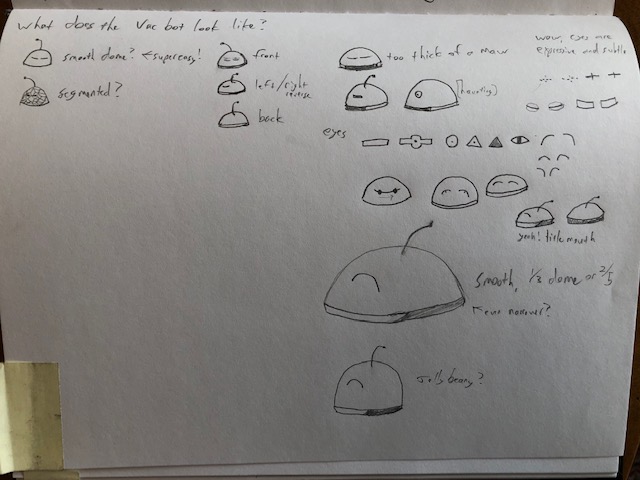 What does the Vac bot look like?
smooth dome? ← super easy!
segmented?
front
left/right
reverse
back
too thick of a maw
wow, eyes are
expressive and subtle
eyes
yeah! title mouth
Smooth, 1/2 dome or 2/5
← even narrower?